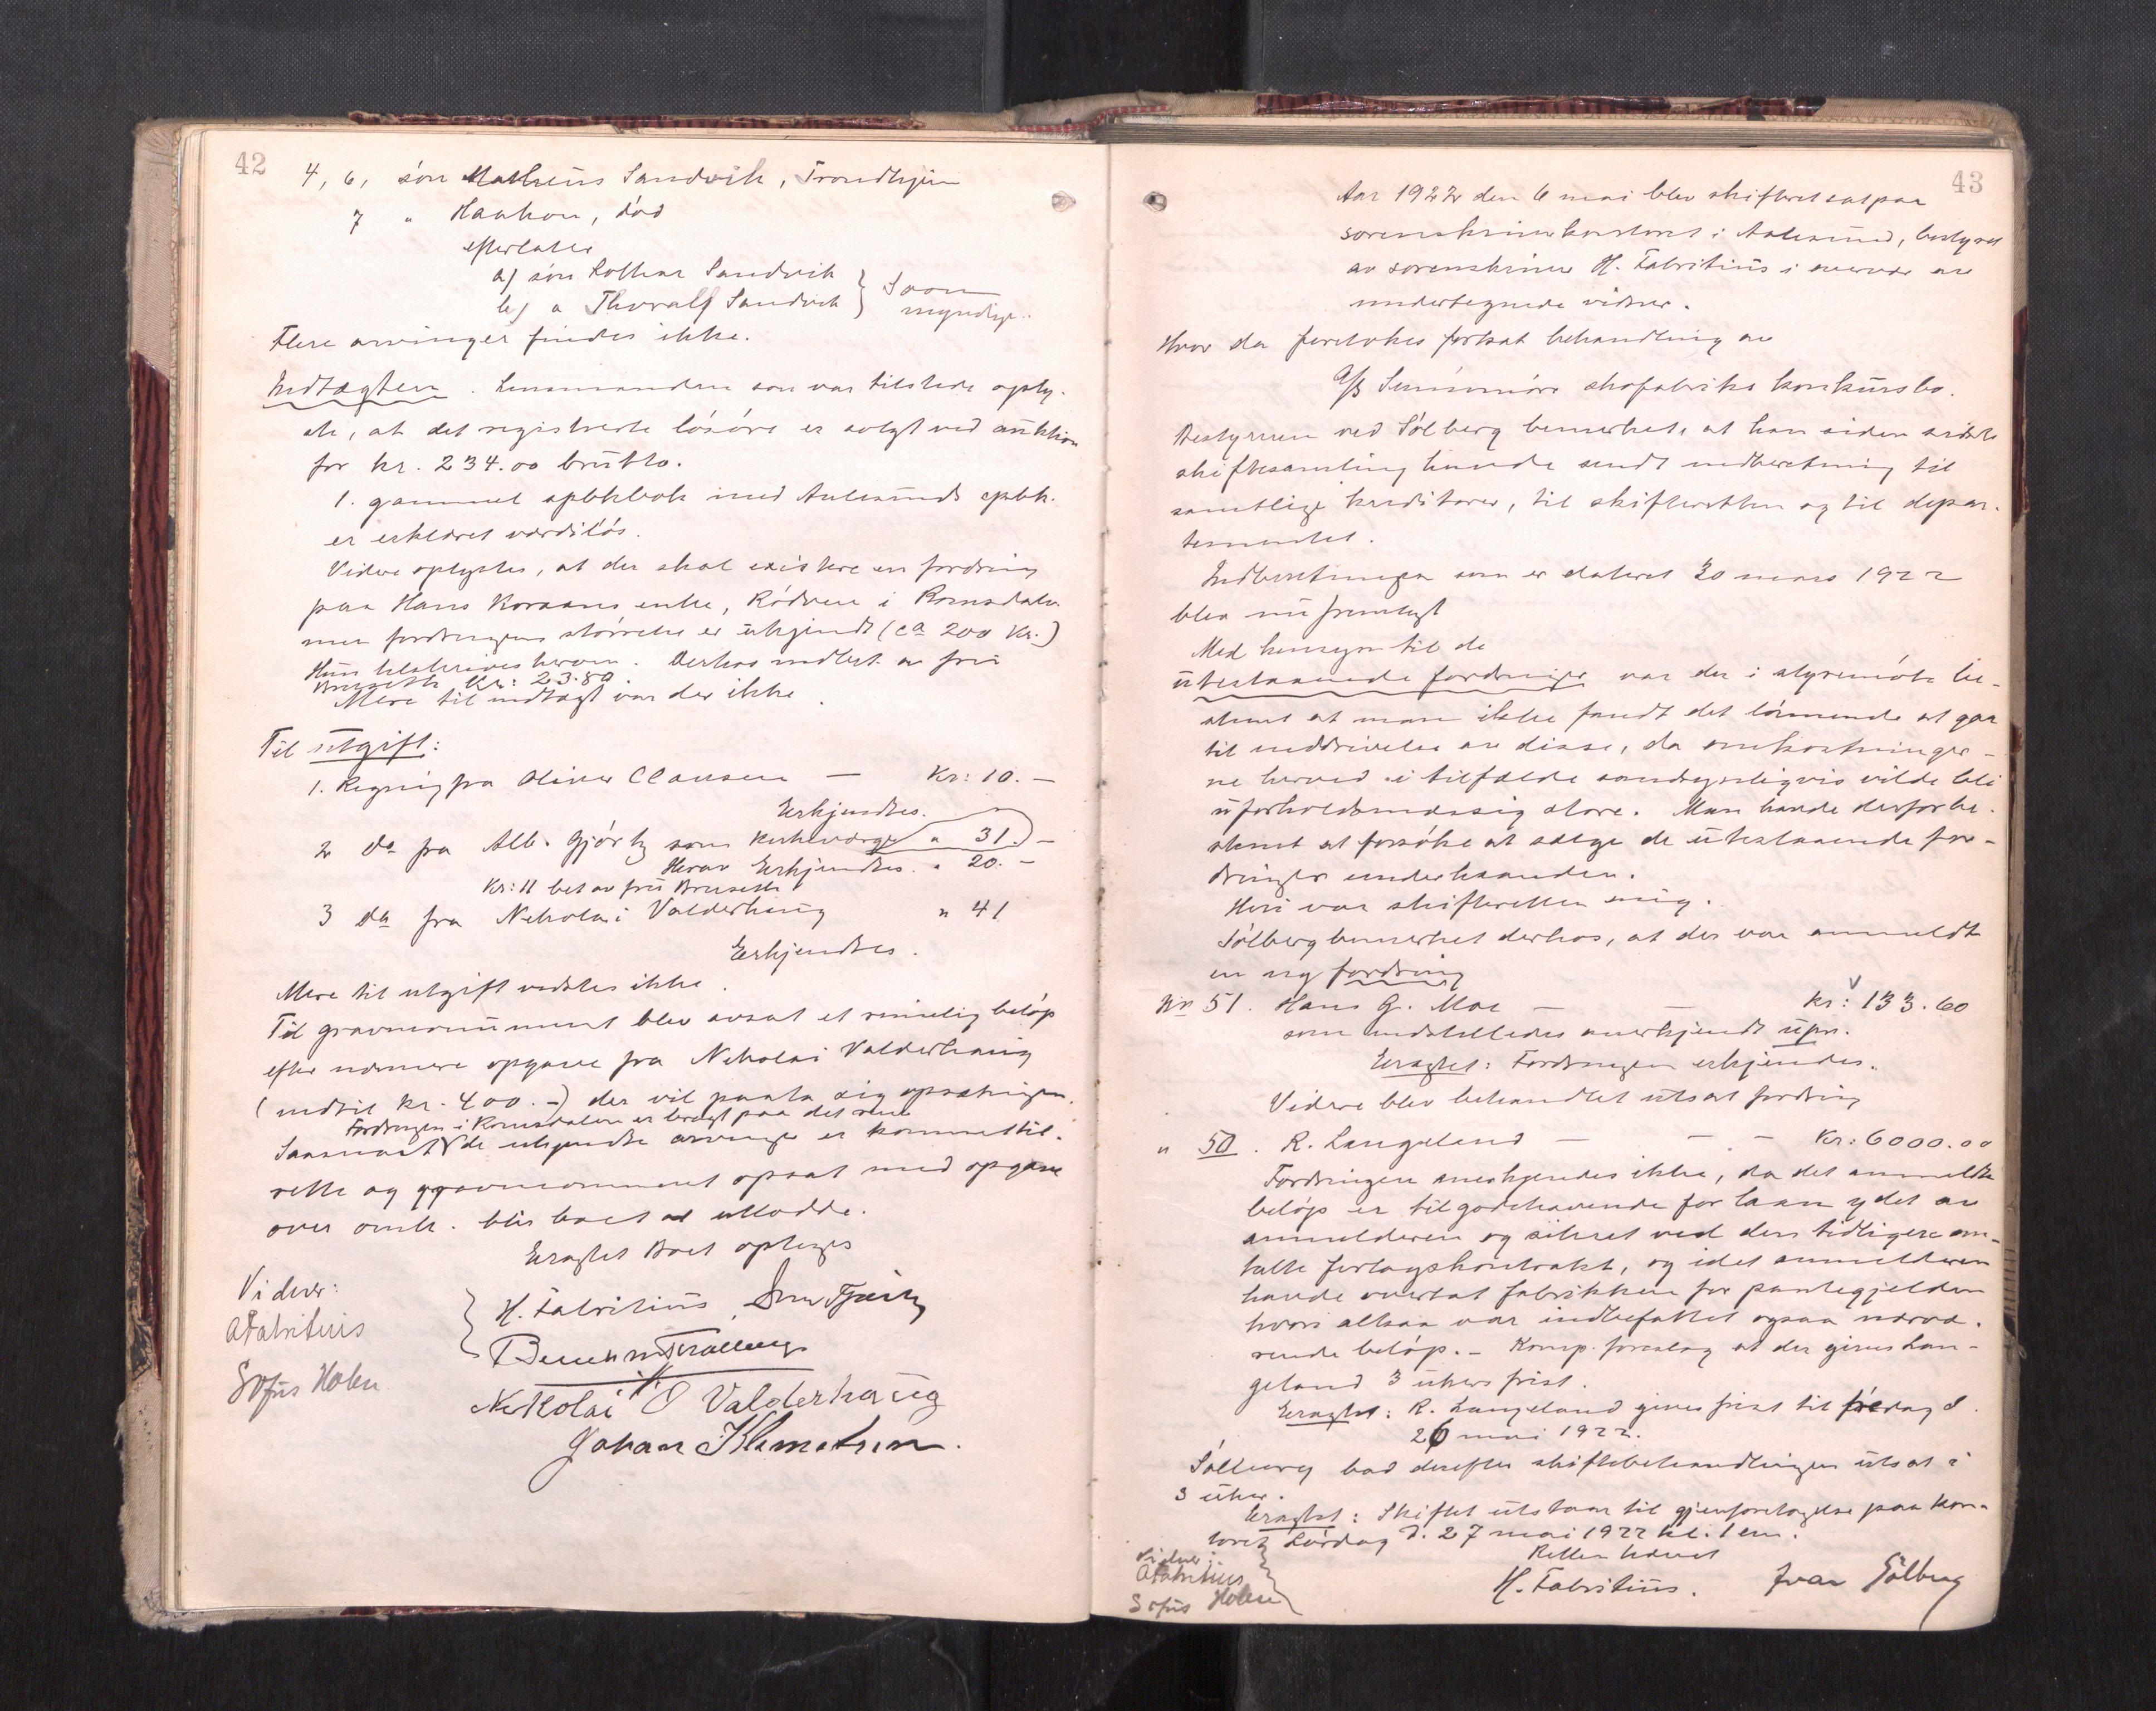 42
4, 6, sön Mathias Sandvik, Trondhjem
7 " Haakon, död
efterlater
a) sön Lothar Sandvik
b) " Thoralf Sandvik } Som myndige.
Flere arvinger findes ikke.
Indtægten. Lensmanden som var tilstede oply-
ste, at det registrerte lösöre er solgt ved auktion
for kr. 234.00 brutto.
1. gammel spbkbok med Aalesunds spbk.
er erklæret værdilös.
Videre oplystes, at der skal existere en fordring
paa Hans Koraans enke, Rödven i Romsdalen
men fordringens störrelse er ukjendt (ca 200 Kr.)
Hun tilskrives herom. Derhos indbet. av fru
Bruseth Kr: 23.80.
Mere til indtægt var der ikke.
Til utgift:
1. Regning fra Oliver Clausen — Kr: 10. —
Erkjendtes.
2 do fra Alb. Gjörtz som kirkeværge " 31. —
Herav Erkjendtes. " 20. —
Kr: 11 bet av fru Bruseth
3 do fra Nikolai Valderhaug " 41
Erkjendtes.
Mere til utgift vidstes ikke.
Til gravmonument blev avsat et rimelig belöp
efter nærmere opgave fra Nikolai Valderhaug
(indtil kr. 400.-) der vil paata sig opsætningen.
Fordringen i Romsdalen er bragt paa det rene
Saasnart de ukjendte arvinger er kommet til-
rette og gravmonument opsat med opgave
over omk. blir boet at utlodde.
Eragtet Boet optages
Vidner:
AFabritius
Sofus Holen
H. Fabritius
Nikolai O Valderhaug
Johan Klemetsen.
43
Aar 1922 den 6 mai blev skifteret sat paa
sorenskriverkontoret i Aalesund, bestyret
av sorenskriver H. Fabritius i overvær av
undertegnede vidner.
Hvor da foretokes fortsat behandling av
A/S Sunnmöre skofabriks konkursbo.
Bestyreren ved Sölberg bemerket, at han siden sidste
skiftesamling havde sendt indberetning til
samtlige kreditorer, til skifteretten og til depar-
tementet.
Indberetningen som er dateret 30 mars 1922
blev nu fremlagt
Med hensyn til de
utestaaende fordringer var der i styremöte be-
stemt at man ikke fandt det lönnende at gaa
til inddrivelse av disse, da omkostninger-
ne herved i tilfælde sandsynligvis vilde bli
uforholdsmæssig store. Man havde derfor be-
stemt at forsöke at sælge de utestaaende for-
dringer underhaanden.
Heri var skifteretten enig.
Sölberg bemerket derhos, at der var anmeldt
en ny fordring
No 51. Hans G. Moe — — kr: 133.60
som indstilledes anerkjendt upr.
Eragtet: Fordringen erkjendes.
Videre blev behandlet utsat fordring
" 50. R. Langeland — — — Kr: 6000.00
Fordringen anerkjendes ikke, da det anmeldte
belöp er tilgodehavende for laan ydet av
anmelderen og sikret ved den tidligere om-
talte forlagskontrakt, og idet anmelderen
havde overtat fabrikken for pantegjelden
hvori altsaa var indbefattet ogsaa nærvæ-
rende belöp. – Komp. foreslog at der gives Lan-
geland 3 ukers frist.
Eragtet: R. Langeland gives frist til fredag d.
26 mai 1922.
Sölberg bad derefter skiftebehandlingen utsat i
3 uker.
Eragtet: Skiftet utstaar til gjenforetagelse paa kon-
toret Lördag d. 27 mai 1922 kl. 1 em.
Retten hævet
Vidner:
AFabritius
Sofus Holen
H. Fabritius. Ivar Sölberg